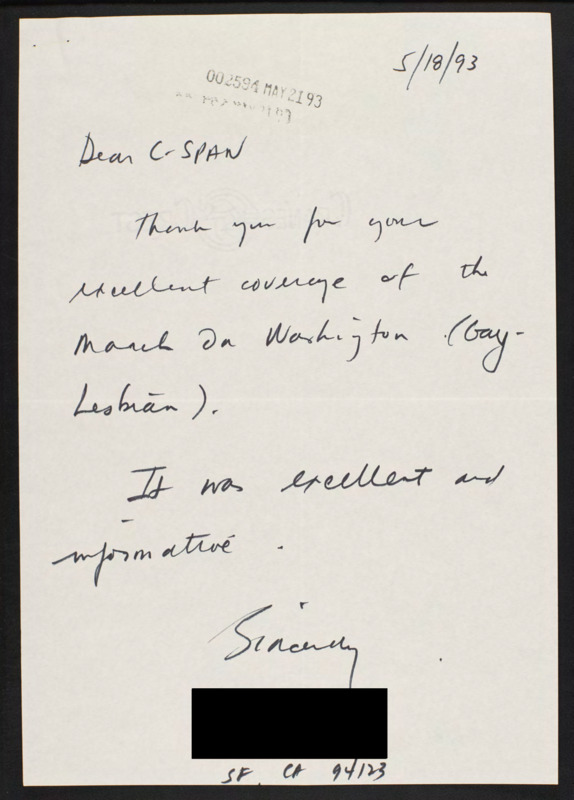 5/18/93
002594 MAY21 93
Dear C-SPAN
Thank you for your
excellent coverage of the
March On Washington (Gay-
Lesbian).
It was excellent and
informative.
Sincerely
SF, CA 94123